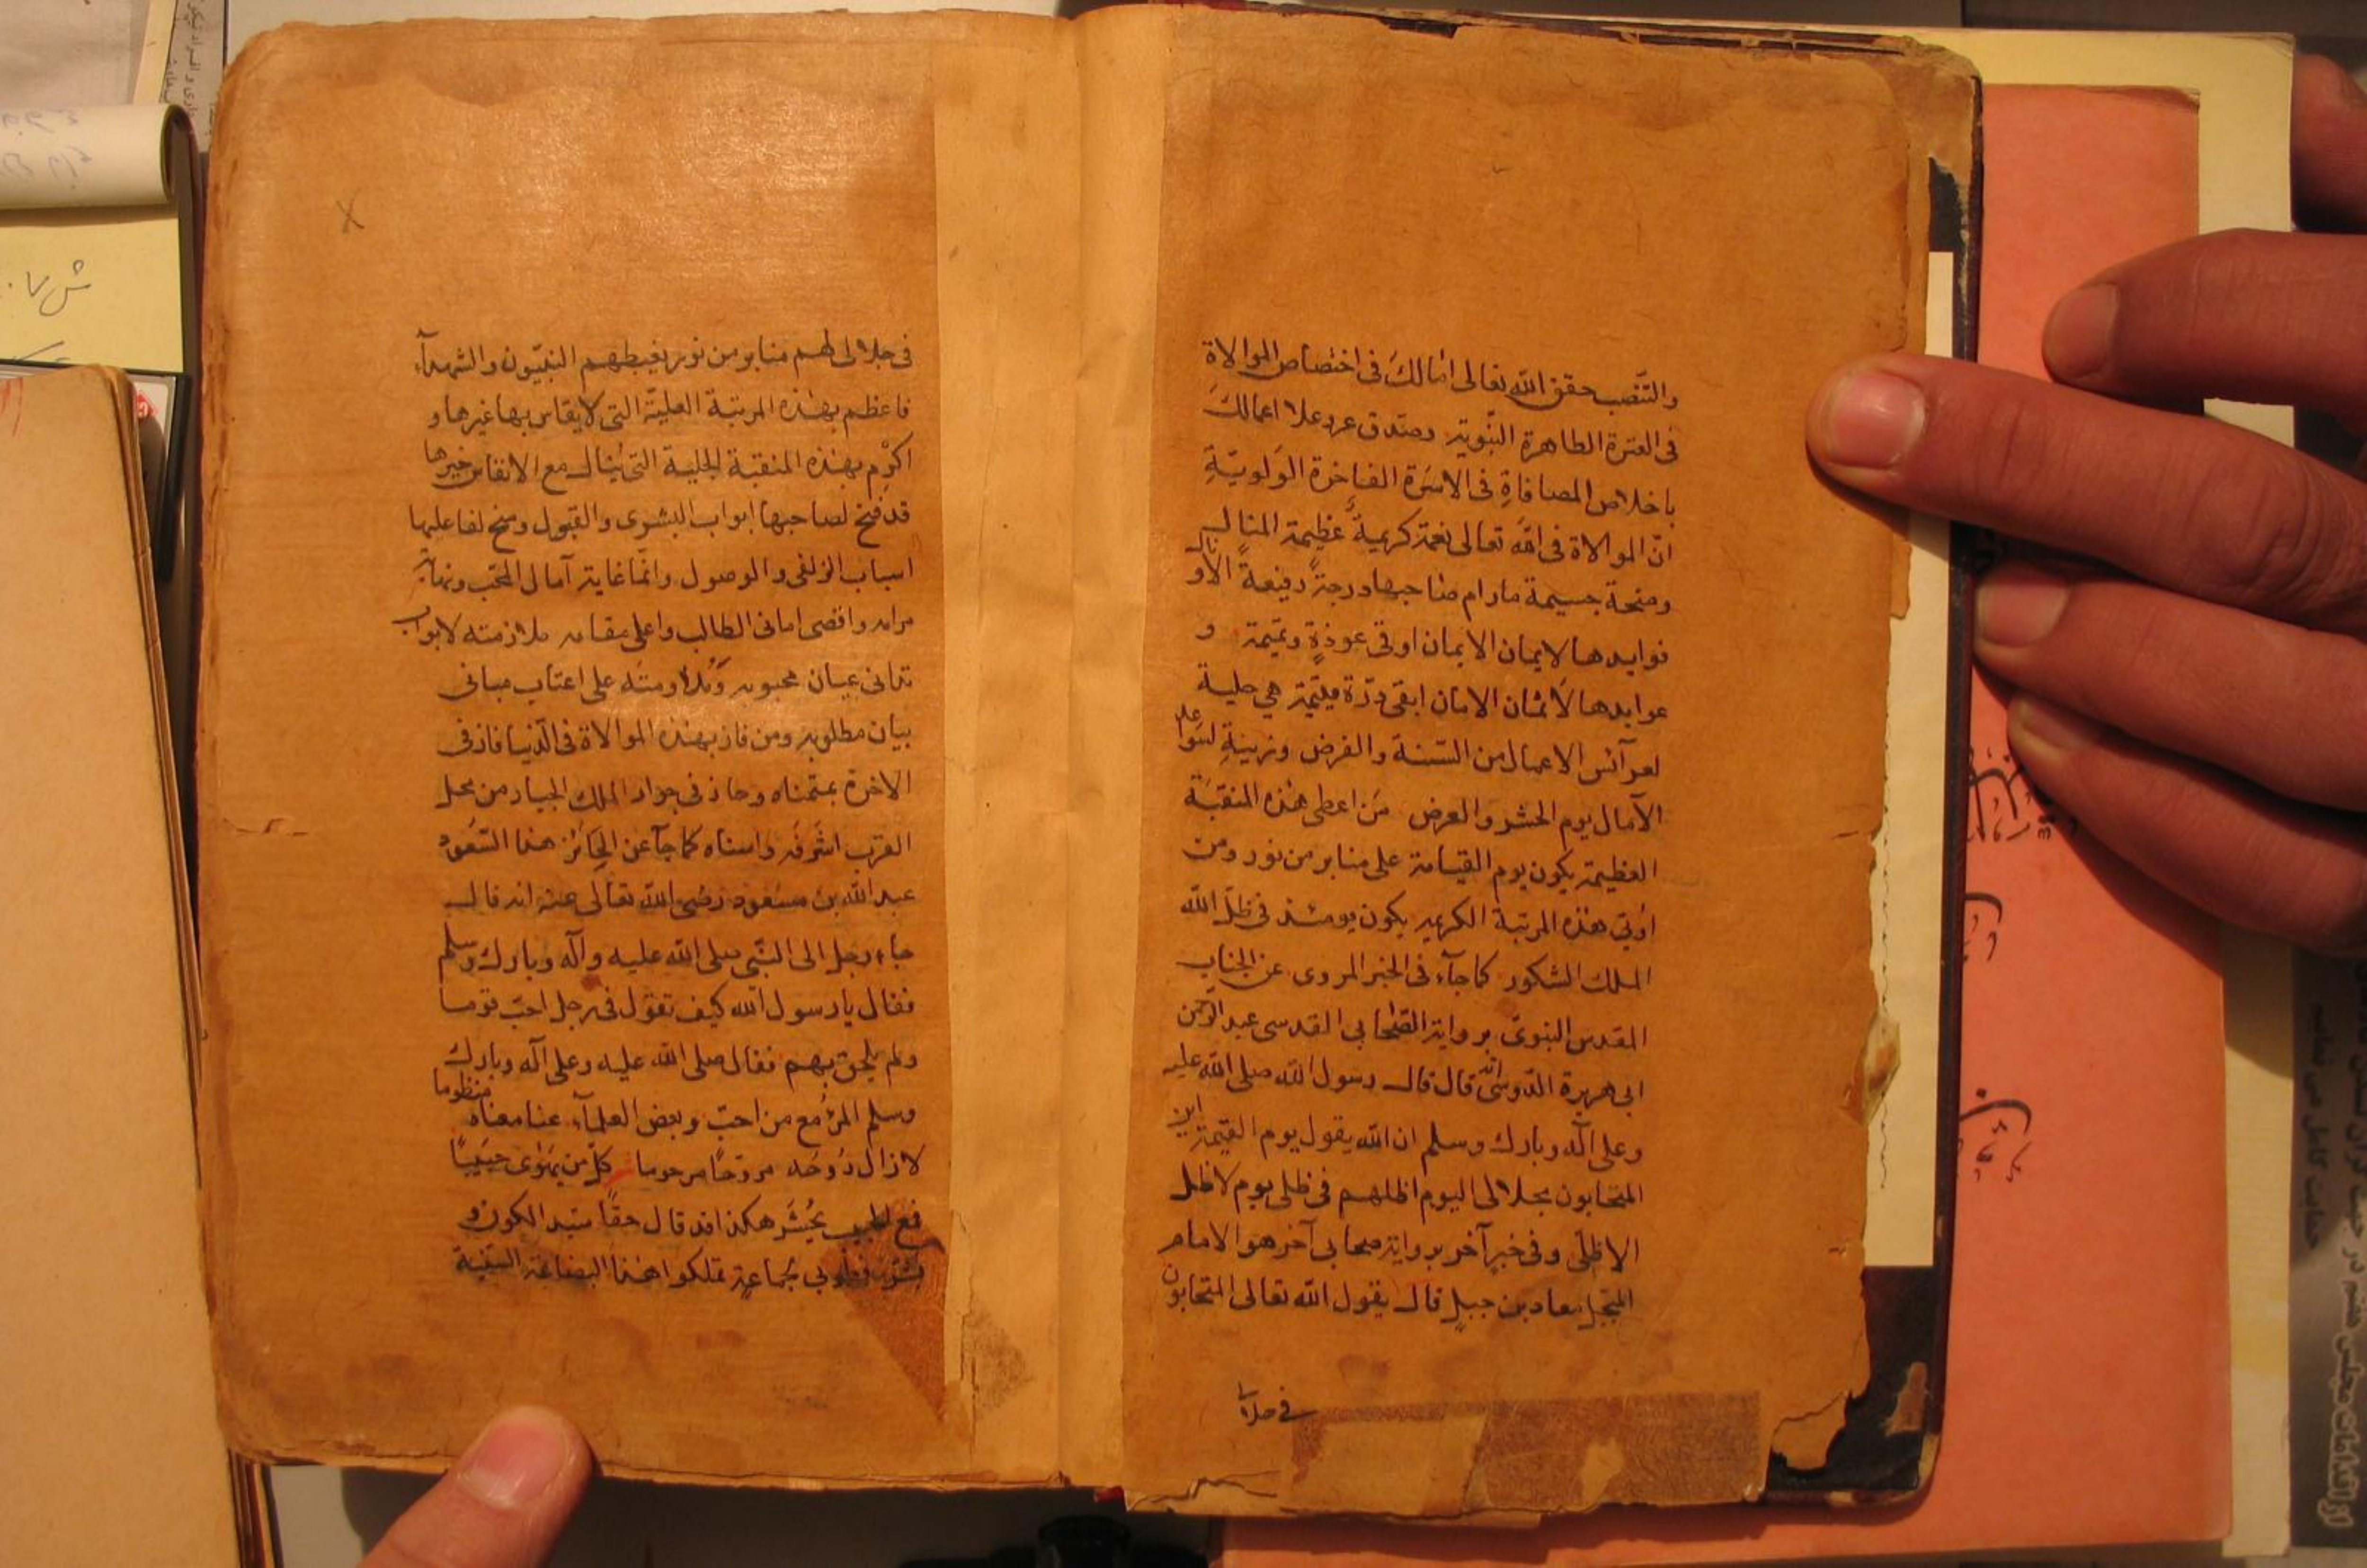 والتنصب حقق الله تعالى امالك فى اختصاص الموالاة
فى العترة الطاهرة النبوية وصدق عز وعلا اعمالك
باخلاص المصافاة فى الاسرة الفاخرة الولوية
ان الموالاة فى الله تعالى نعمة كريمة عظيمة المنال
ومنحة جسيمة مادام صاحبها درجة رفيعة
فوايدها لايمان الايمان اوقى عوذة وتميمة و
عوايدها لاثمان الامان ابقى درة يتيمة هي حلية
لعرآئس الاعمال من السنة والفرض وزينة
الآمال يوم الحشر والعرض من اعطى هذه المنقبة
العظيمة يكون يوم القيامة على منابر من نور ومن
اوتى هذه المرتبة الكريمة يكون يومئذ فى ظل الله
الملك الشكور كما جآء فى الخبر المروى عن الجناب
المقدس النبوى برواية الصحابى القدسى عبد الرحمن
ابى هريرة الدوسى انه قال قال رسول الله صلى الله عليه
وعلى آله وبارك وسلم ان الله يقول يوم القيمة اين
المتحابون بجلالى اليوم اظلهم فى ظلى يوم لا ظل
الا ظلى وفى خبر آخر برواية صحابى آخر هو الامام
المبجل معاد بن جبل قال يقول الله تعالى المتحابون
فى جلالى
فى جلالى لهم منابر من نور يغبطهم النبيون والشهدآء
فاعظم بهذه المرتبة العلية التى لا يقاس بها غيرها و
اكرم بهذه المنقبة الجلية التى ينال مع الانفاس خيرها
قد فتح لصاحبها ابواب البشرى والقبول وسنح لفاعليها
اسباب الزلفى والوصول وانما غاية آمال المحب ونهاية
مرامه واقصى امانى الطالب واعلى مقامه ملازمته لابواب
تدانى عيان محبوبه ومداومته على اعتاب مبانى
بيان مطلوبه ومن فاز بهذه الموالاة فى الدنيا فاز فى
الاخرة بمتمناه وحاذ فى جوار الملك الجبار من محل
القرب اشرفه واسناه كما جآء عن الحائز هذا السعود
عبد الله بن مسعود رضى الله تعالى عنه انه قال
جاء رجل الى النبى صلى الله عليه وآله وبارك وسلم
فقال يا رسول الله كيف تقول فى رجل احب قوما
ولم يلحق بهم فقال صلى الله عليه وعلى آله وبارك
وسلم المرء مع من احب وبعض العلمآء عنا معناه منظوما
لا زال روحه مروحا مرحوما كل من يهوى حبيبا
فمع الحبيب يحشر هكذا قد قال حقا سيد الكون و
بشر فطوبى لجماعة تملكوا هذا البضاعة السنية